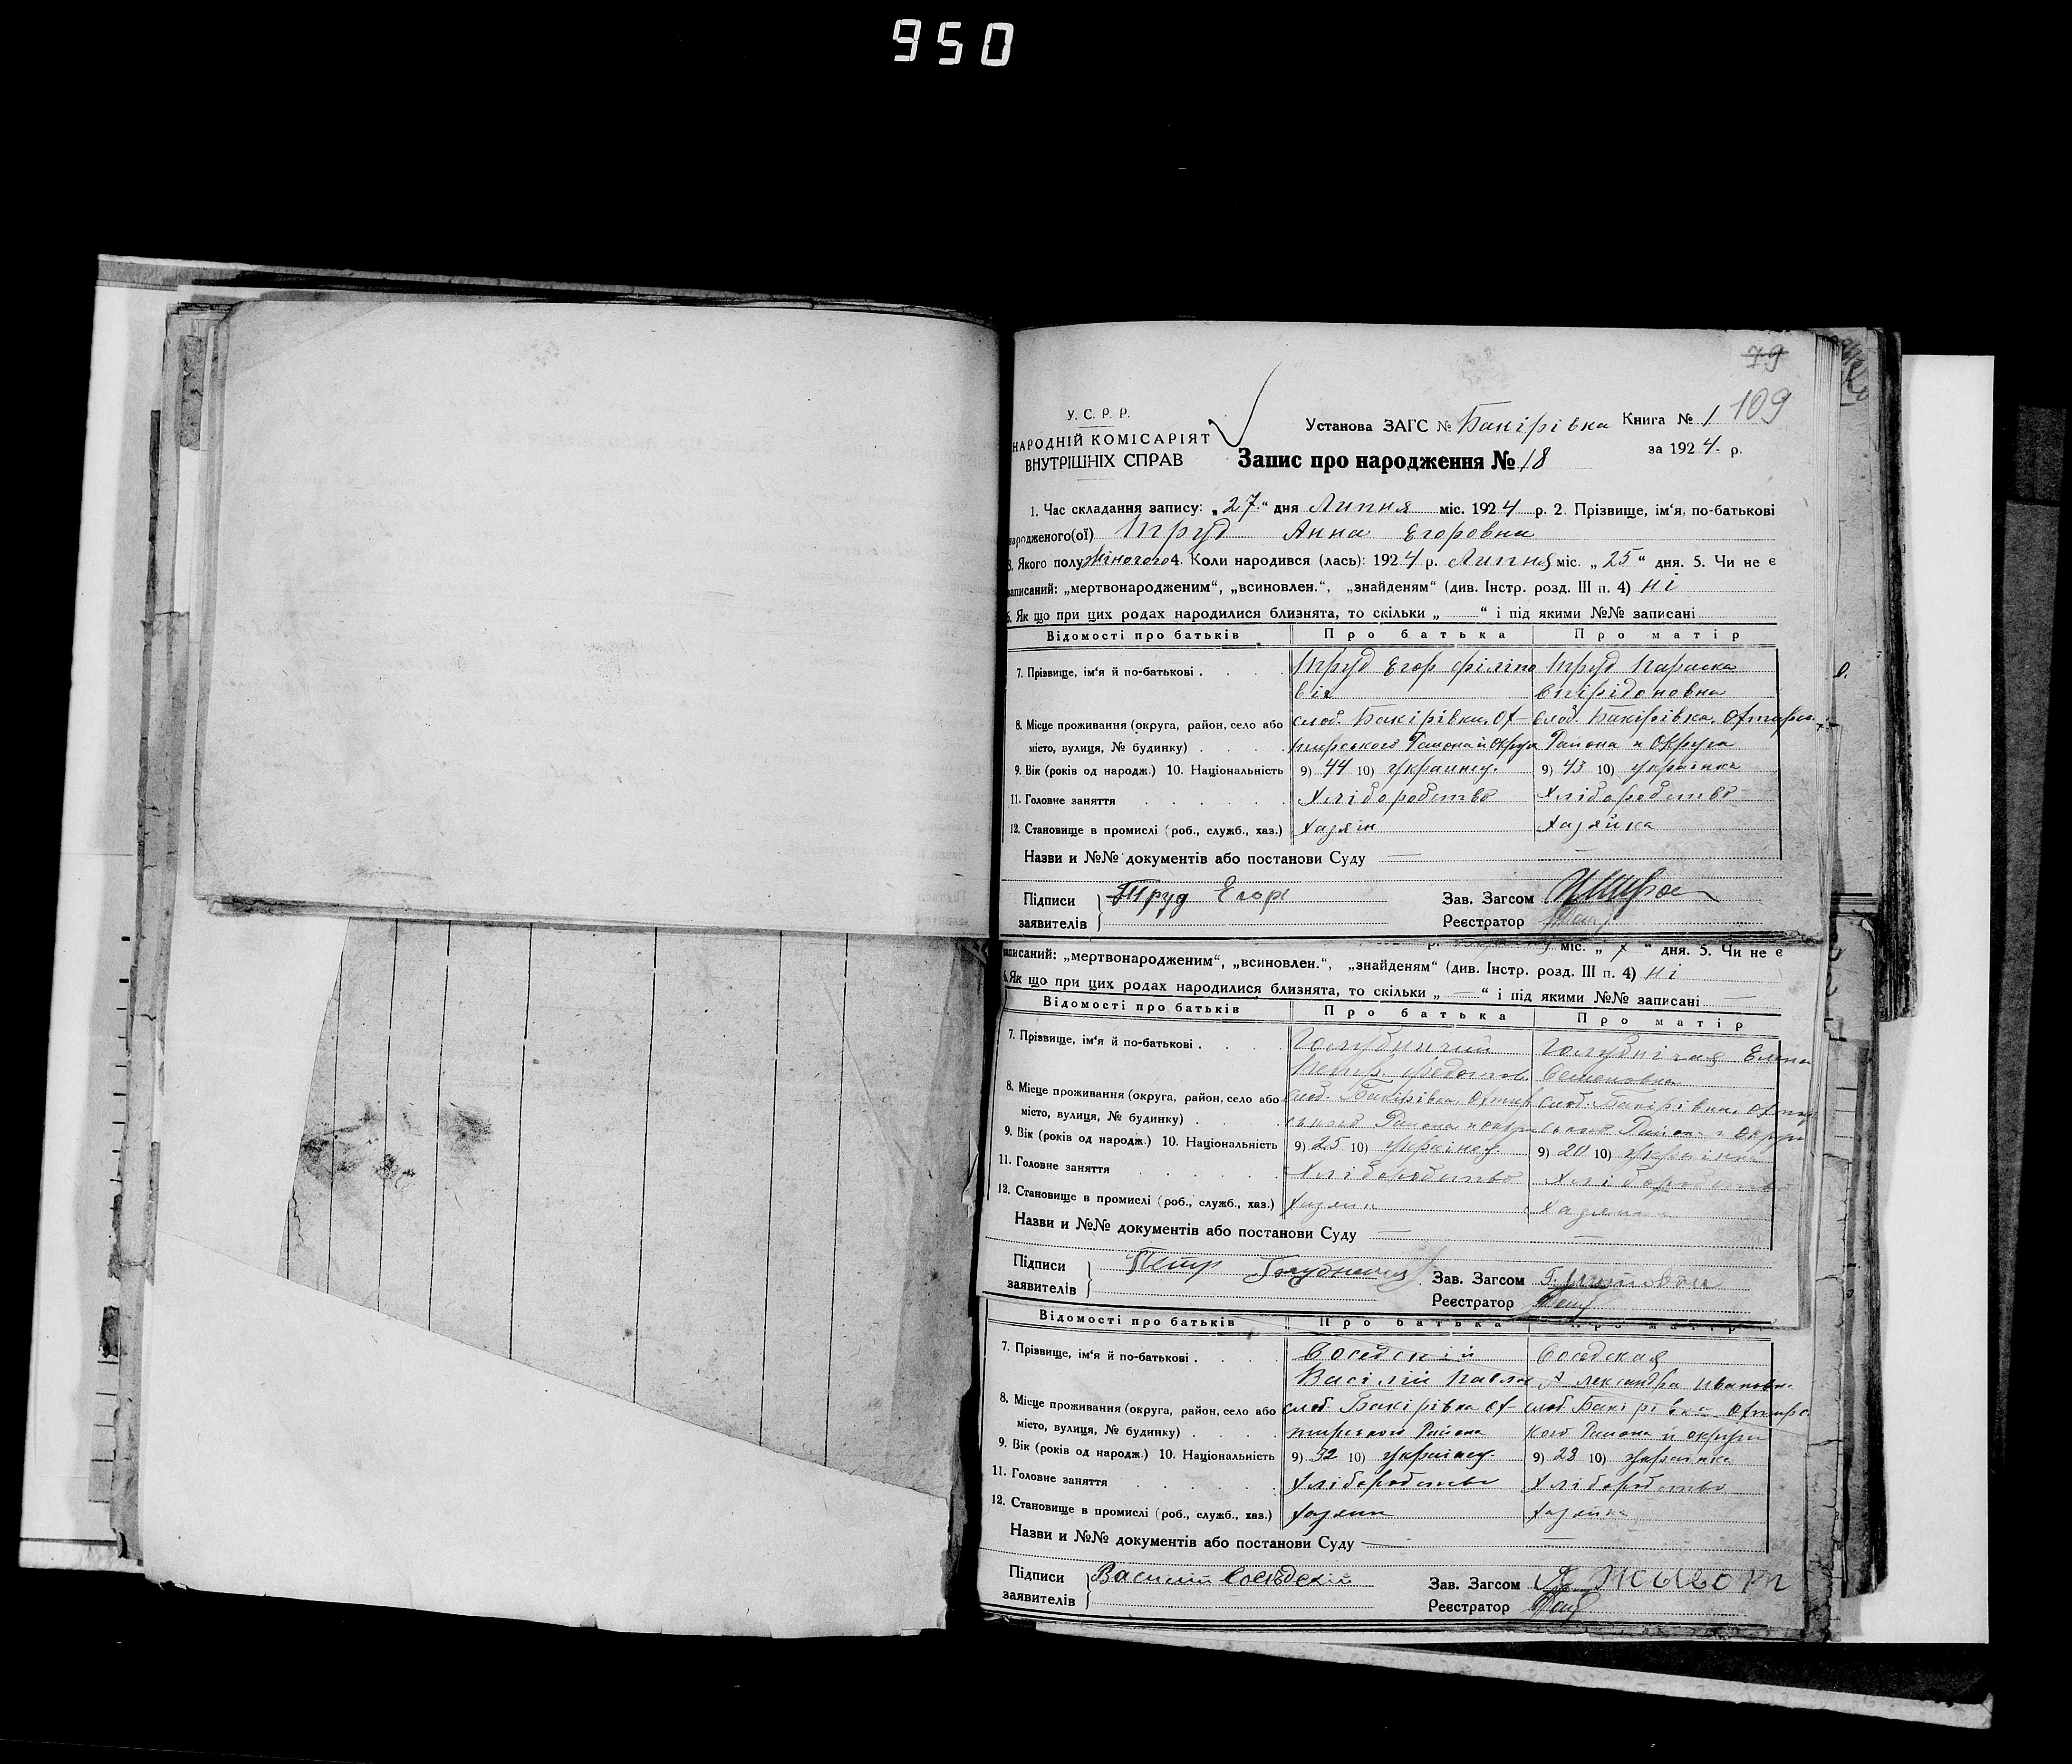 950
79
109
У. С. Р. Р.
НАРОДНІЙ КОМІСАРІЯТ
ВНУТРІШНІХ СПРАВ
Установа ЗАГС № Бакірівка Книга № 1
за 1924 р.
Запис про народження № 18
1. Час складання запису: „27“ дня Липня міс. 1924 р. 2. Прізвище, ім‘я, по-батькові
народженого(ої) Труд Анна Егоровна
3. Якого полу жіночого 4. Коли народився (лась): 1924 р. Липня міс. „25“ дня. 5. Чи не є
записаний: „мертвонародженим“, „всиновлен.“, „знайденям“ (див. Інстр. розд. III п. 4) ні
6. Як що при цих родах народилися близнята, то скільки „ “ і під якими №№ записані
Відомості про батьків Про батька Про матір
7. Прізвище, ім‘я й по-батькові . Труд Егор Філіпо Труд Параска
віч Спірідоновна
8. Місце проживання (округа, район, село або слоб. Бакірівки, Ох- Слоб. Бакірівка, Охтирс.
місто, вулиця, № будинку) . тирського Района и Округа Района и Округа
9. Вік (років од народж.) 10. Національність 9) 44 10) Украинец. 9) 43 10) Українка
11. Головне заняття Хліборобство Хліборобство
12. Становище в промислі (роб., служб., хаз.) Хазяін Хазяйка
Назви и №№ документів або постанови Суду —
Підписи Труд Егор Зав. Загсом
заявителів Реєстратор
р. міс. „ 7 “ дня. 5. Чи не є
записаний: „мертвонародженим“, „всиновлен.“, „знайденям“ (див. Інстр. розд. III п. 4) ні
6. Як що при цих родах народилися близнята, то скільки „ — “ і під якими №№ записані —
Відомості про батьків Про батька Про матір
7. Прізвище, ім‘я й по-батькові . Голубничий Голубнічая Елена
Петр Федотов. Семеновна
8. Місце проживання (округа, район, село або слоб. Бакірівка, Охтир Слоб. Бакірівка, Охтир
місто, вулиця, № будинку) . ського Района и Округ ського Района и Округи
9. Вік (років од народж.) 10. Національність 9) 25 10) Українец. 9) 20 10) Українка
11. Головне заняття Хліборобство Хліборобство
12. Становище в промислі (роб., служб., хаз.) Хазяин
Назви и №№ документів або постанови Суду —
Підписи Петр Голубничий Зав. Загсом
заявителів Реєстратор
Відомості про батьків Про батька Про матір
7. Прізвище, ім‘я й по-батькові . Соседскій Соседская
Васілий Павло Александра Ивановн.
8. Місце проживання (округа, район, село або слоб. Бакірівка Ох- слоб. Бакірівка Охтирс
місто, вулиця, № будинку) . тирського Района кого Района и округи
9. Вік (років од народж.) 10. Національність 9) 32 10) Українец. 9) 28 10) Українка
11. Головне заняття Хліборобство Хліборобство
12. Становище в промислі (роб., служб., хаз.) Хазяин Хазяйка
Назви и №№ документів або постанови Суду —
Підписи Василий Соседский Зав. Загсом
заявителів Реєстратор